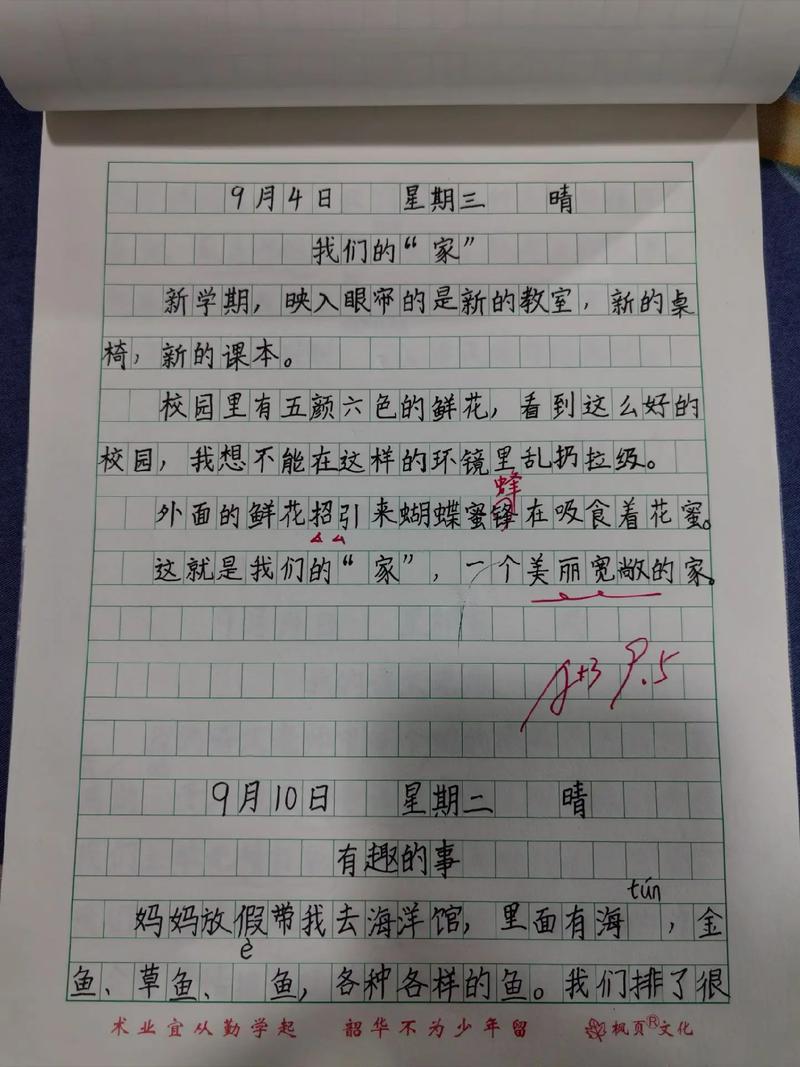 9月4日 星期三 晴
我们的“家”
新学期，映入眼帘的是新的教室，新的桌
椅，新的课本。
校园里有五颜六色的鲜花，看到这么好的
校园，我想不能在这样的环镜里乱扔拉级。
蜂
外面的鲜花招引来蝴蝶蜜锋在吸食着花蜜。
这就是我们的“家”，一个美丽宽敞的家。
9.5
9月10日 星期二 晴
有趣的事
tún
妈妈放假带我去海洋馆，里面有海 ，金
è
鱼、草鱼、 鱼，各种各样的鱼。我们排了很
术业宜从勤学起 韶华不为少年留 枫页®文化